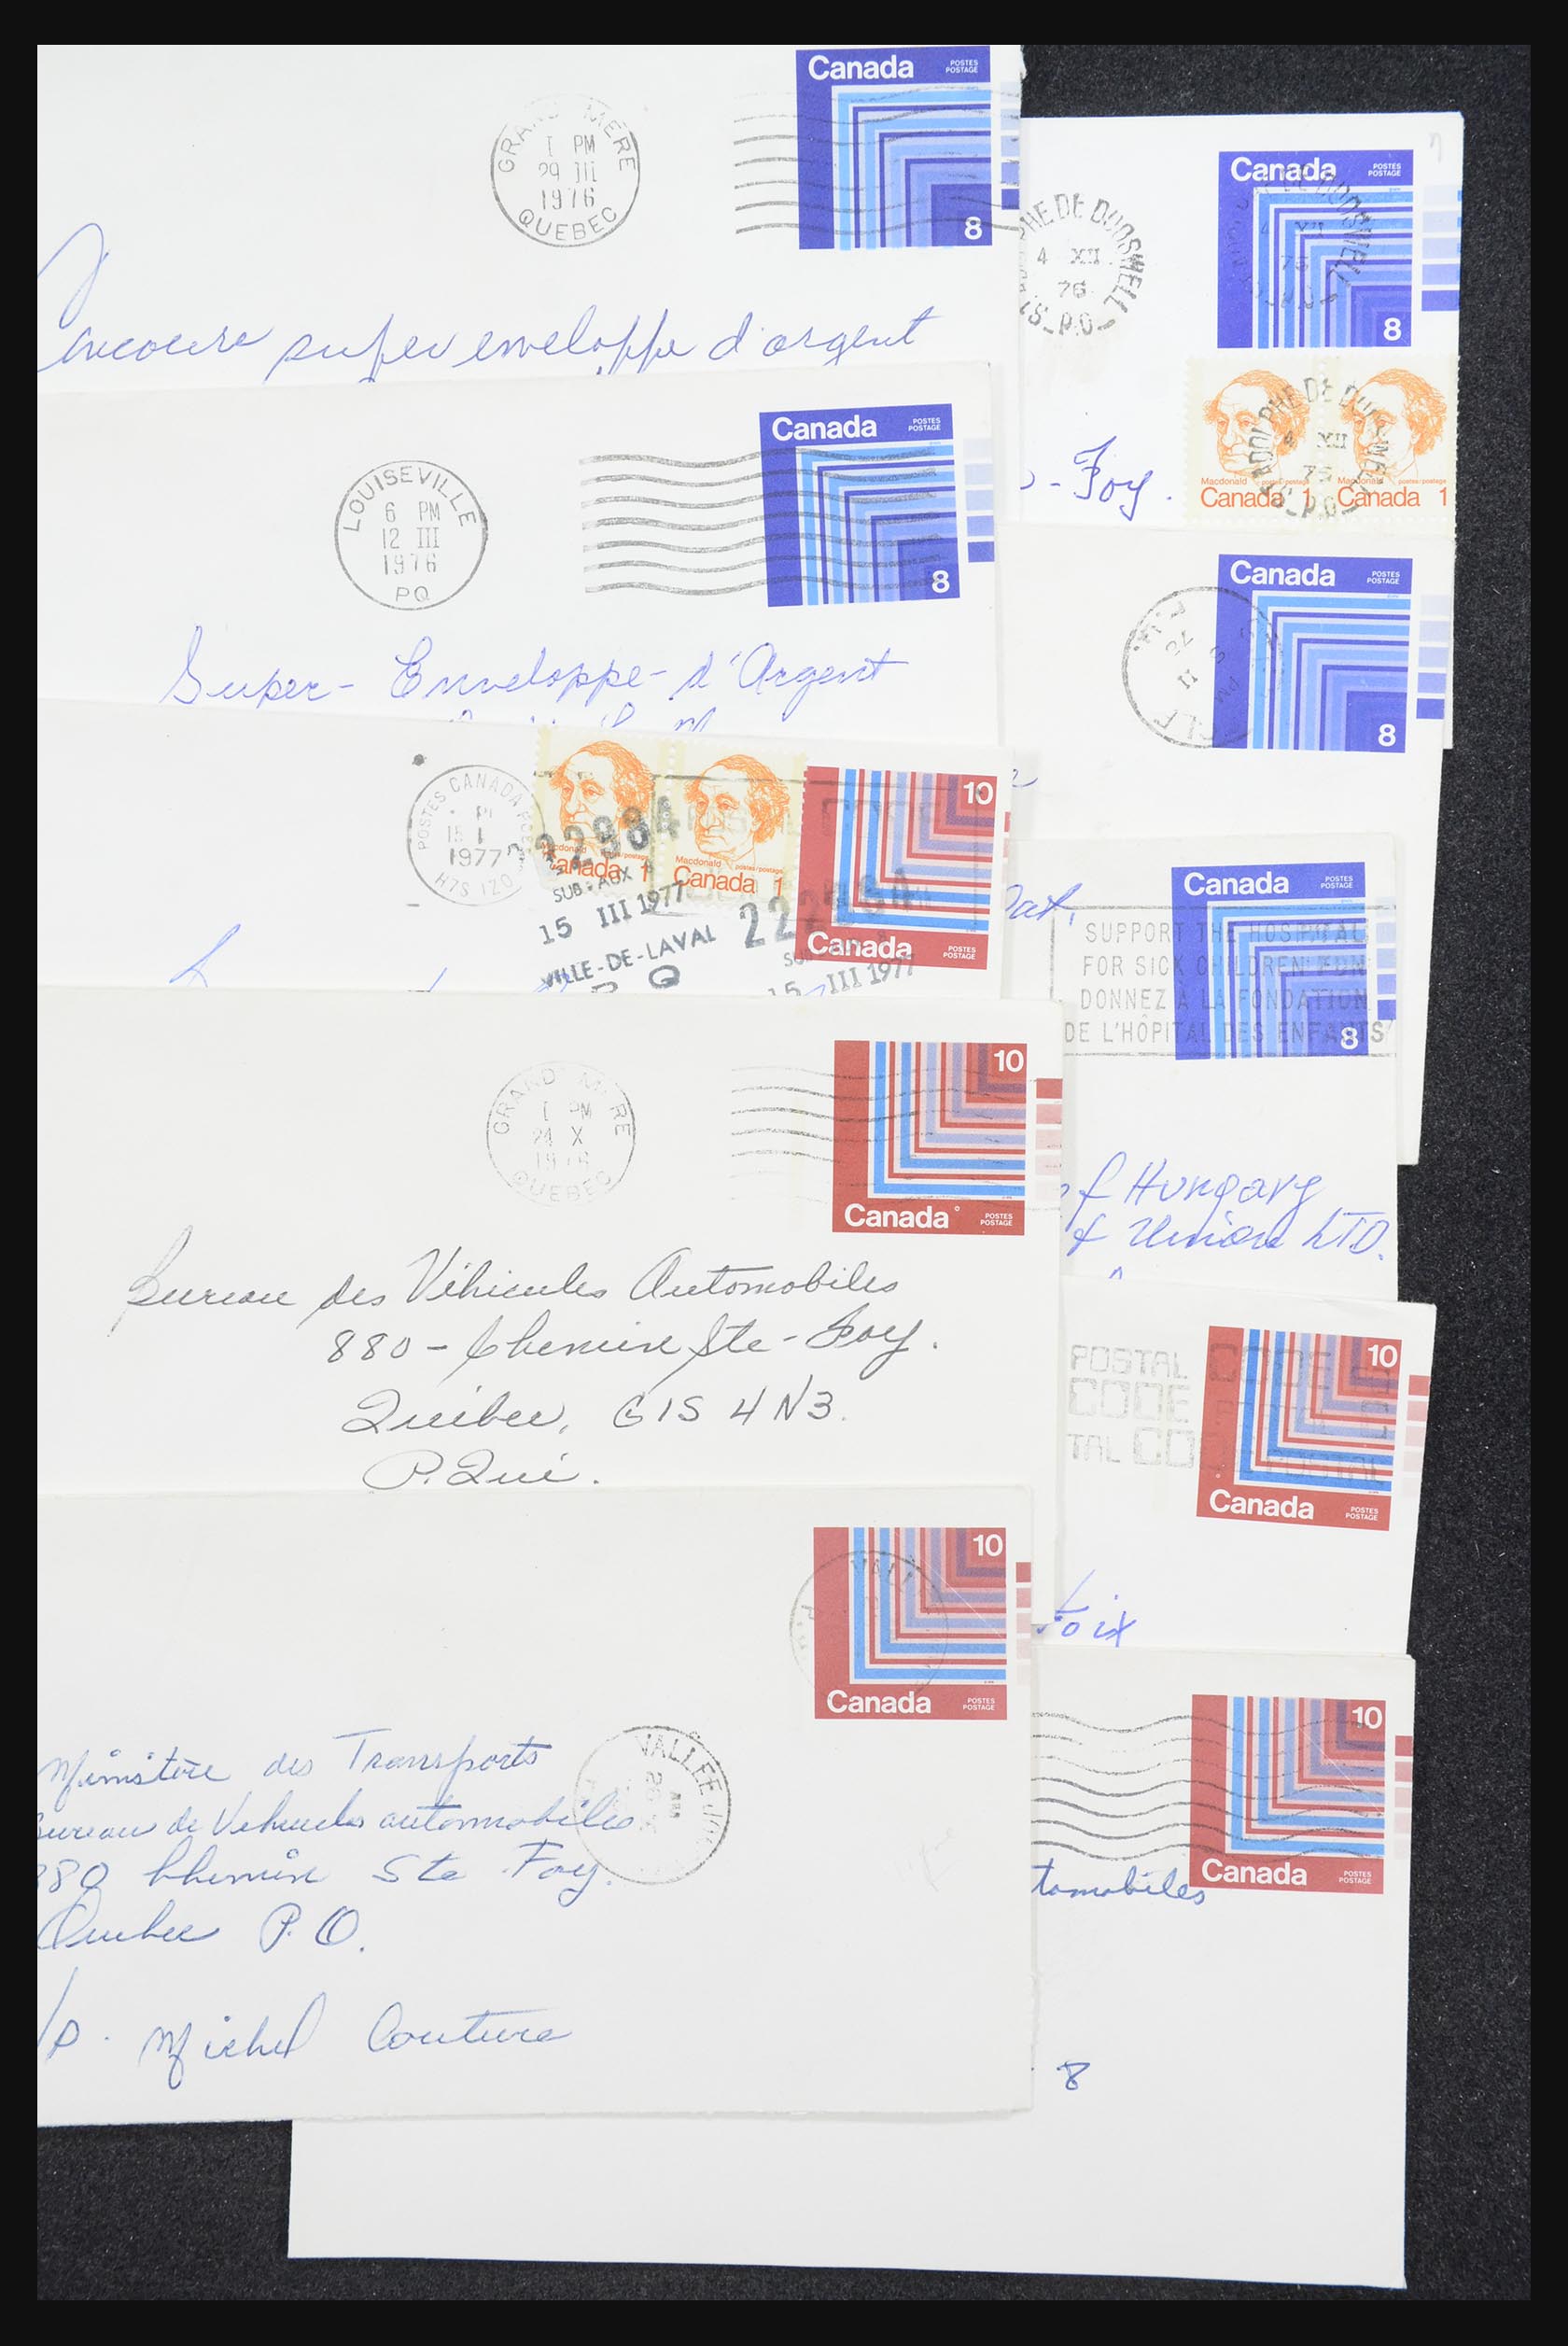 Canada POSTES POSTAGE
8
GRAND MÈRE
1 PM
29 III
1976
QUEBEC
super enveloppe d'argent
Canada POSTES POSTAGE
8
LOUISEVILLE
6 PM
12 III
1976
PQ
Super-Enveloppe-d'Argent
POSTES CANADA
1977
H7S 1Z0
Macdonald postes/postage
Canada 1
Macdonald postes/postage
Canada 1
10
Canada POSTES POSTAGE
222984
SUB. AUX
15 III 1977
VILLE-DE-LAVAL
P Q
222984
15 III 1977
10
Canada POSTES POSTAGE
GRAND MÈRE
1 PM
24 X
1976
QUEBEC
Bureau des Véhicules Automobiles
880-Chemin Ste-Foy.
Québec, G1S 4N3.
P. Qué.
10
Canada POSTES POSTAGE
VALLÉE
Ministère des Transports
Bureau de Véhicules automobiles
880 Chemin Ste Foy.
Quebec P.Q.
Michel Couture
Canada POSTES POSTAGE
8
PHE DE DUDSWELL
4 XII
76
P.O.
-Foy.
Macdonald postes/postage
Canada 1
Macdonald postes/postage
Canada 1
ADOLPHE DE DUDSWELL
4 XII
76
P.O.
Canada POSTES POSTAGE
8
Canada POSTES POSTAGE
8
SUPPORT THE HOSPITAL
FOR SICK CHILDREN FUND
DONNEZ À LA FONDATION
DE L'HÔPITAL DES ENFANTS
of Hungary
& Union LTD.
10
Canada POSTES POSTAGE
POSTAL CODE
CODE
TAL CO
oix
10
Canada POSTES POSTAGE
tomobiles
8